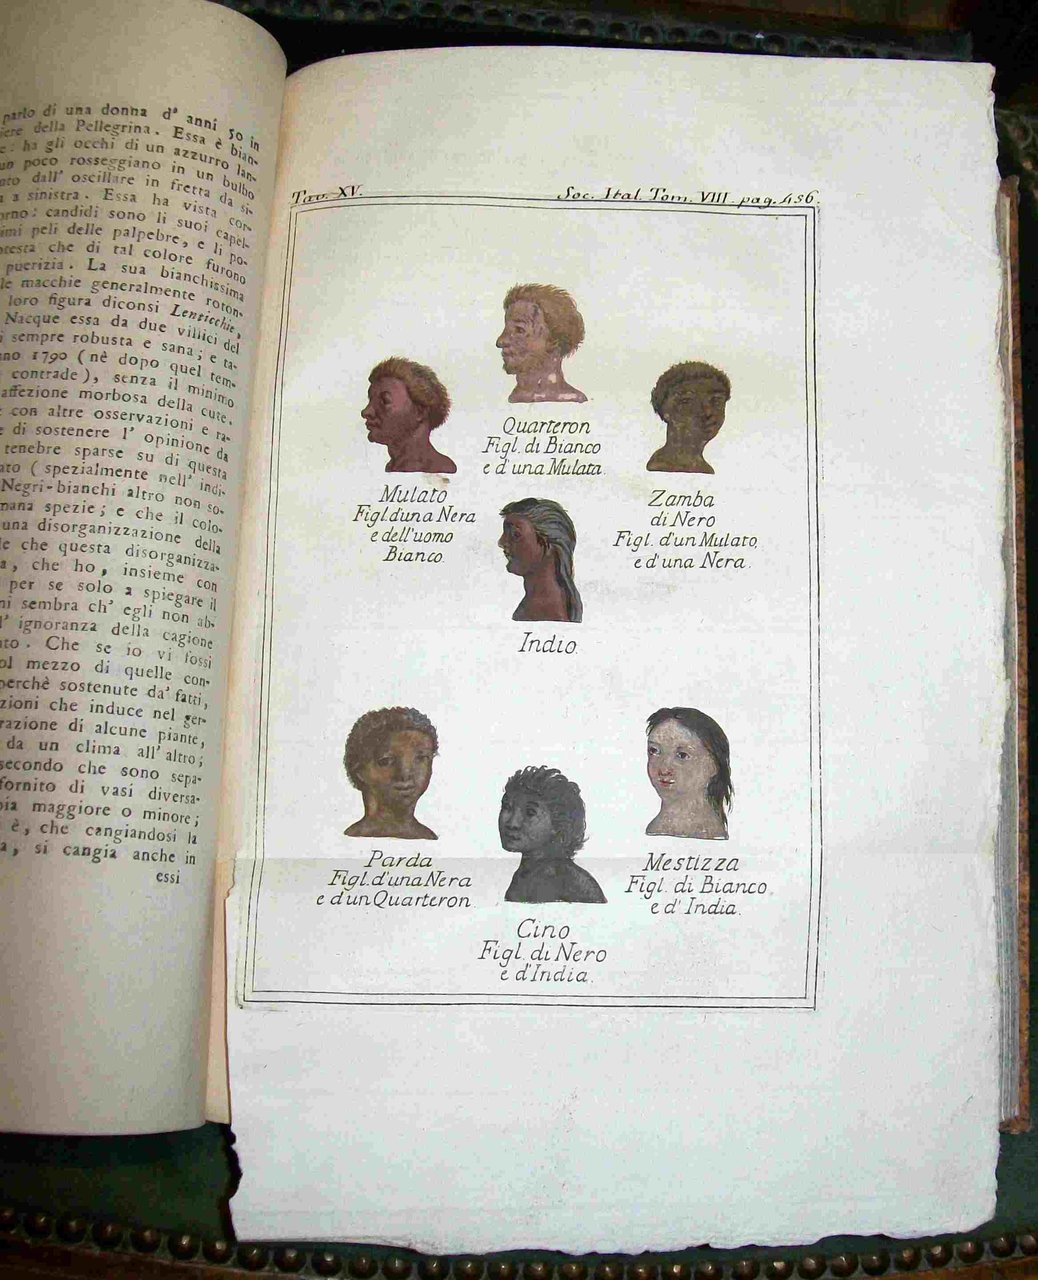 parlo di una donna d' anni 50 in
iere della Pellegrina. Essa è bian-
e: ha gli occhi di un azzurro lan-
un poco rosseggiano in un bulbo
nto dall' oscillare in fretta da si-
a a sinistra. Essa ha vista cor-
orno: candidi sono li suoi capel-
imi peli delle palpebre, e li po-
testa che di tal colore furono
puerizia. La sua bianchissima
le macchie generalmente roton-
loro figura diconsi Lenticchie,
Nacque essa da due villici del
i sempre robusta e sana; e ta-
nno 1790 (nè dopo quel tem-
contrade), senza il minimo
affezione morbosa della cute.
e con altre osservazioni e ra-
e di sostenere l' opinione da
tenebre sparse su di questa
ato (spezialmente nell' indi-
Negri-bianchi altro non so-
mana spezie; e che il colo-
una disorganizzazione della
le che questa disorganizza-
a, che ho, insieme con
per se solo a spiegare il
ni sembra ch' egli non ab-
l' ignoranza della cagione
nto. Che se io vi fossi
ol mezzo di quelle con-
perchè sostenute da' fatti,
zioni che induce nel ger-
razione di alcune piante,
da un clima all' altro;
secondo che sono sepa-
fornito di vasi diversa-
pia maggiore o minore;
è, che cangiandosi la
a, si cangia anche in
essi
Tav. XV. Soc. Ital. Tom. VIII. pag. 456.
Quarteron
Figl. di Bianco
e d'una Mulata.
Mulato
Figl. d'una Nera
e dell'uomo
Bianco.
Zamba
di Nero
Figl. d'un Mulato,
e d'una Nera.
Indio.
Parda
Figl. d'una Nera
e d'un Quarteron.
Mestizza
Figl. di Bianco
e d'India.
Cino
Figl. di Nero
e d'India.